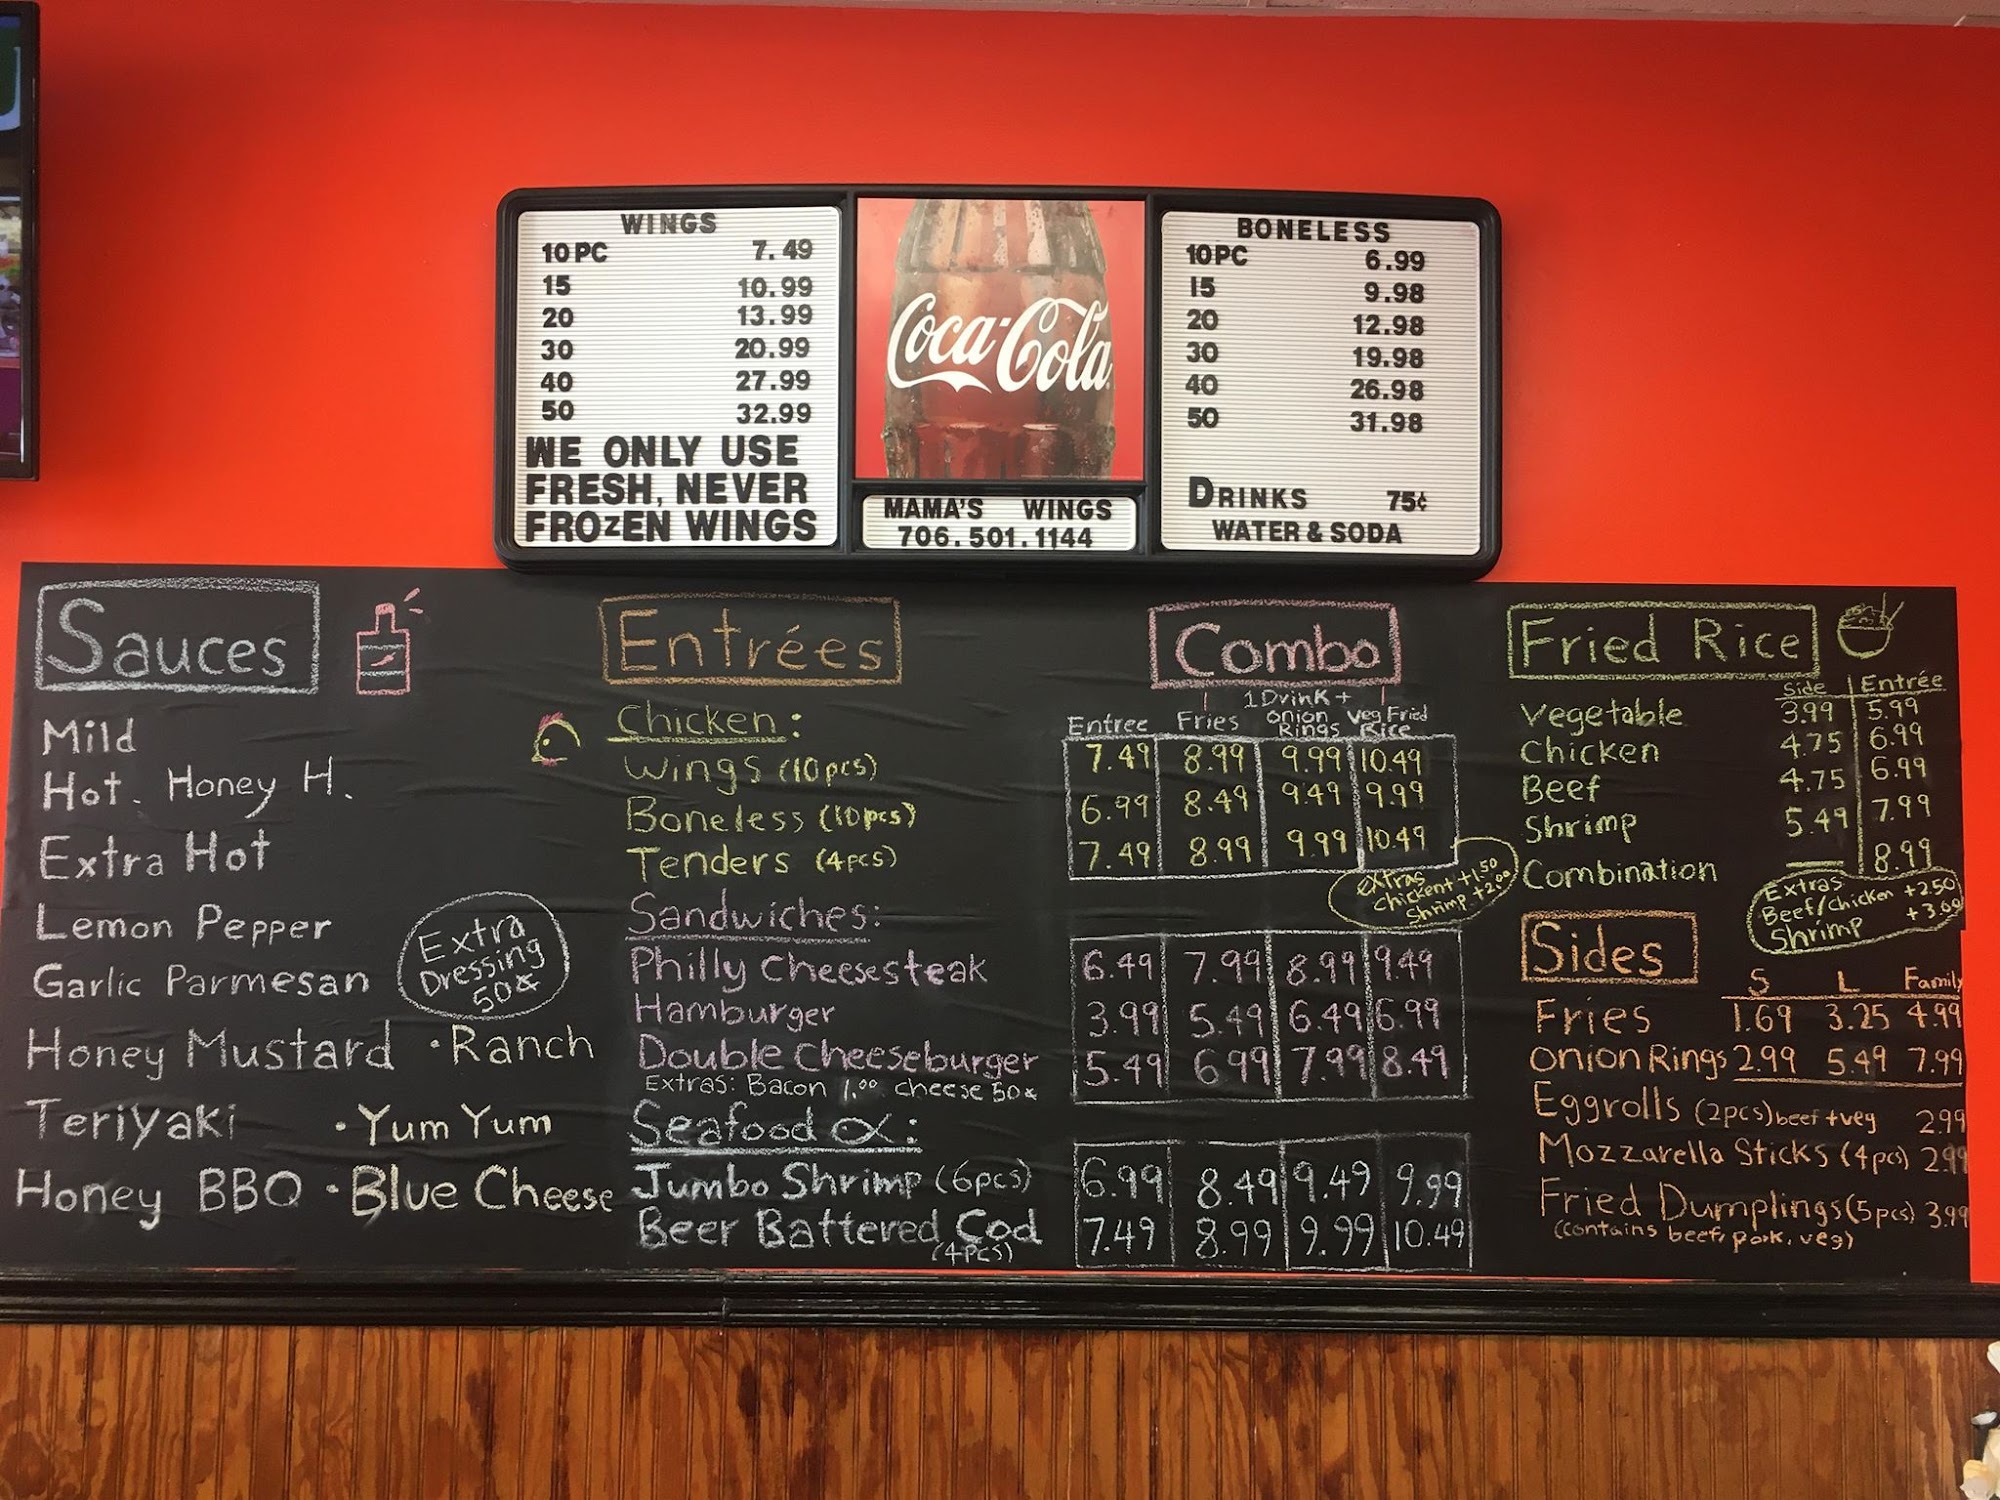 WINGS
10 PC 7.49
15 10.99
20 13.99
30 20.99
40 27.99
50 32.99
WE ONLY USE
FRESH, NEVER
FROzEN WINGS
Coca-Cola
MAMA'S WINGS
706.501.1144
BONELESS
10PC 6.99
15 9.98
20 12.98
30 19.98
40 26.98
50 31.98
DRINKS 75¢
WATER & SODA
Sauces
Mild
Hot. Honey H.
Extra Hot
Lemon Pepper
Garlic Parmesan
Honey Mustard · Ranch
Teriyaki · Yum Yum
Honey BBQ · Blue Cheese
Extra
Dressing
50¢
Entrées
Chicken:
Wings (10pcs)
Boneless (10pcs)
Tenders (4pcs)
Sandwiches:
Philly Cheesesteak
Hamburger
Double Cheeseburger
Extras: Bacon 1.00 cheese 50¢
Seafood :
Jumbo Shrimp (6pcs)
Beer Battered Cod
(4pcs)
Combo
1 Drink +
Entree Fries Onion Rings Veg Fried Rice
7.49 8.99 9.99 10.49
6.99 8.49 9.49 9.99
7.49 8.99 9.99 10.49
Extras
Chicken +1.50
Shrimp +2.00
6.49 7.99 8.99 9.49
3.99 5.49 6.49 6.99
5.49 6.99 7.99 8.49
6.99 8.49 9.49 9.99
7.49 8.99 9.99 10.49
Fried Rice
Side Entrée
Vegetable 3.99 5.99
Chicken 4.75 6.99
Beef 4.75 6.99
Shrimp 5.49 7.99
Combination 8.99
Extras
Beef/chicken +2.50
Shrimp +3.00
Sides
S L Family
Fries 1.69 3.25 4.99
Onion Rings 2.99 5.49 7.99
Eggrolls (2pcs) beef + veg 2.99
Mozzarella Sticks (4pcs) 2.99
Fried Dumplings (5pcs) 3.99
(contains beef, pork, veg)